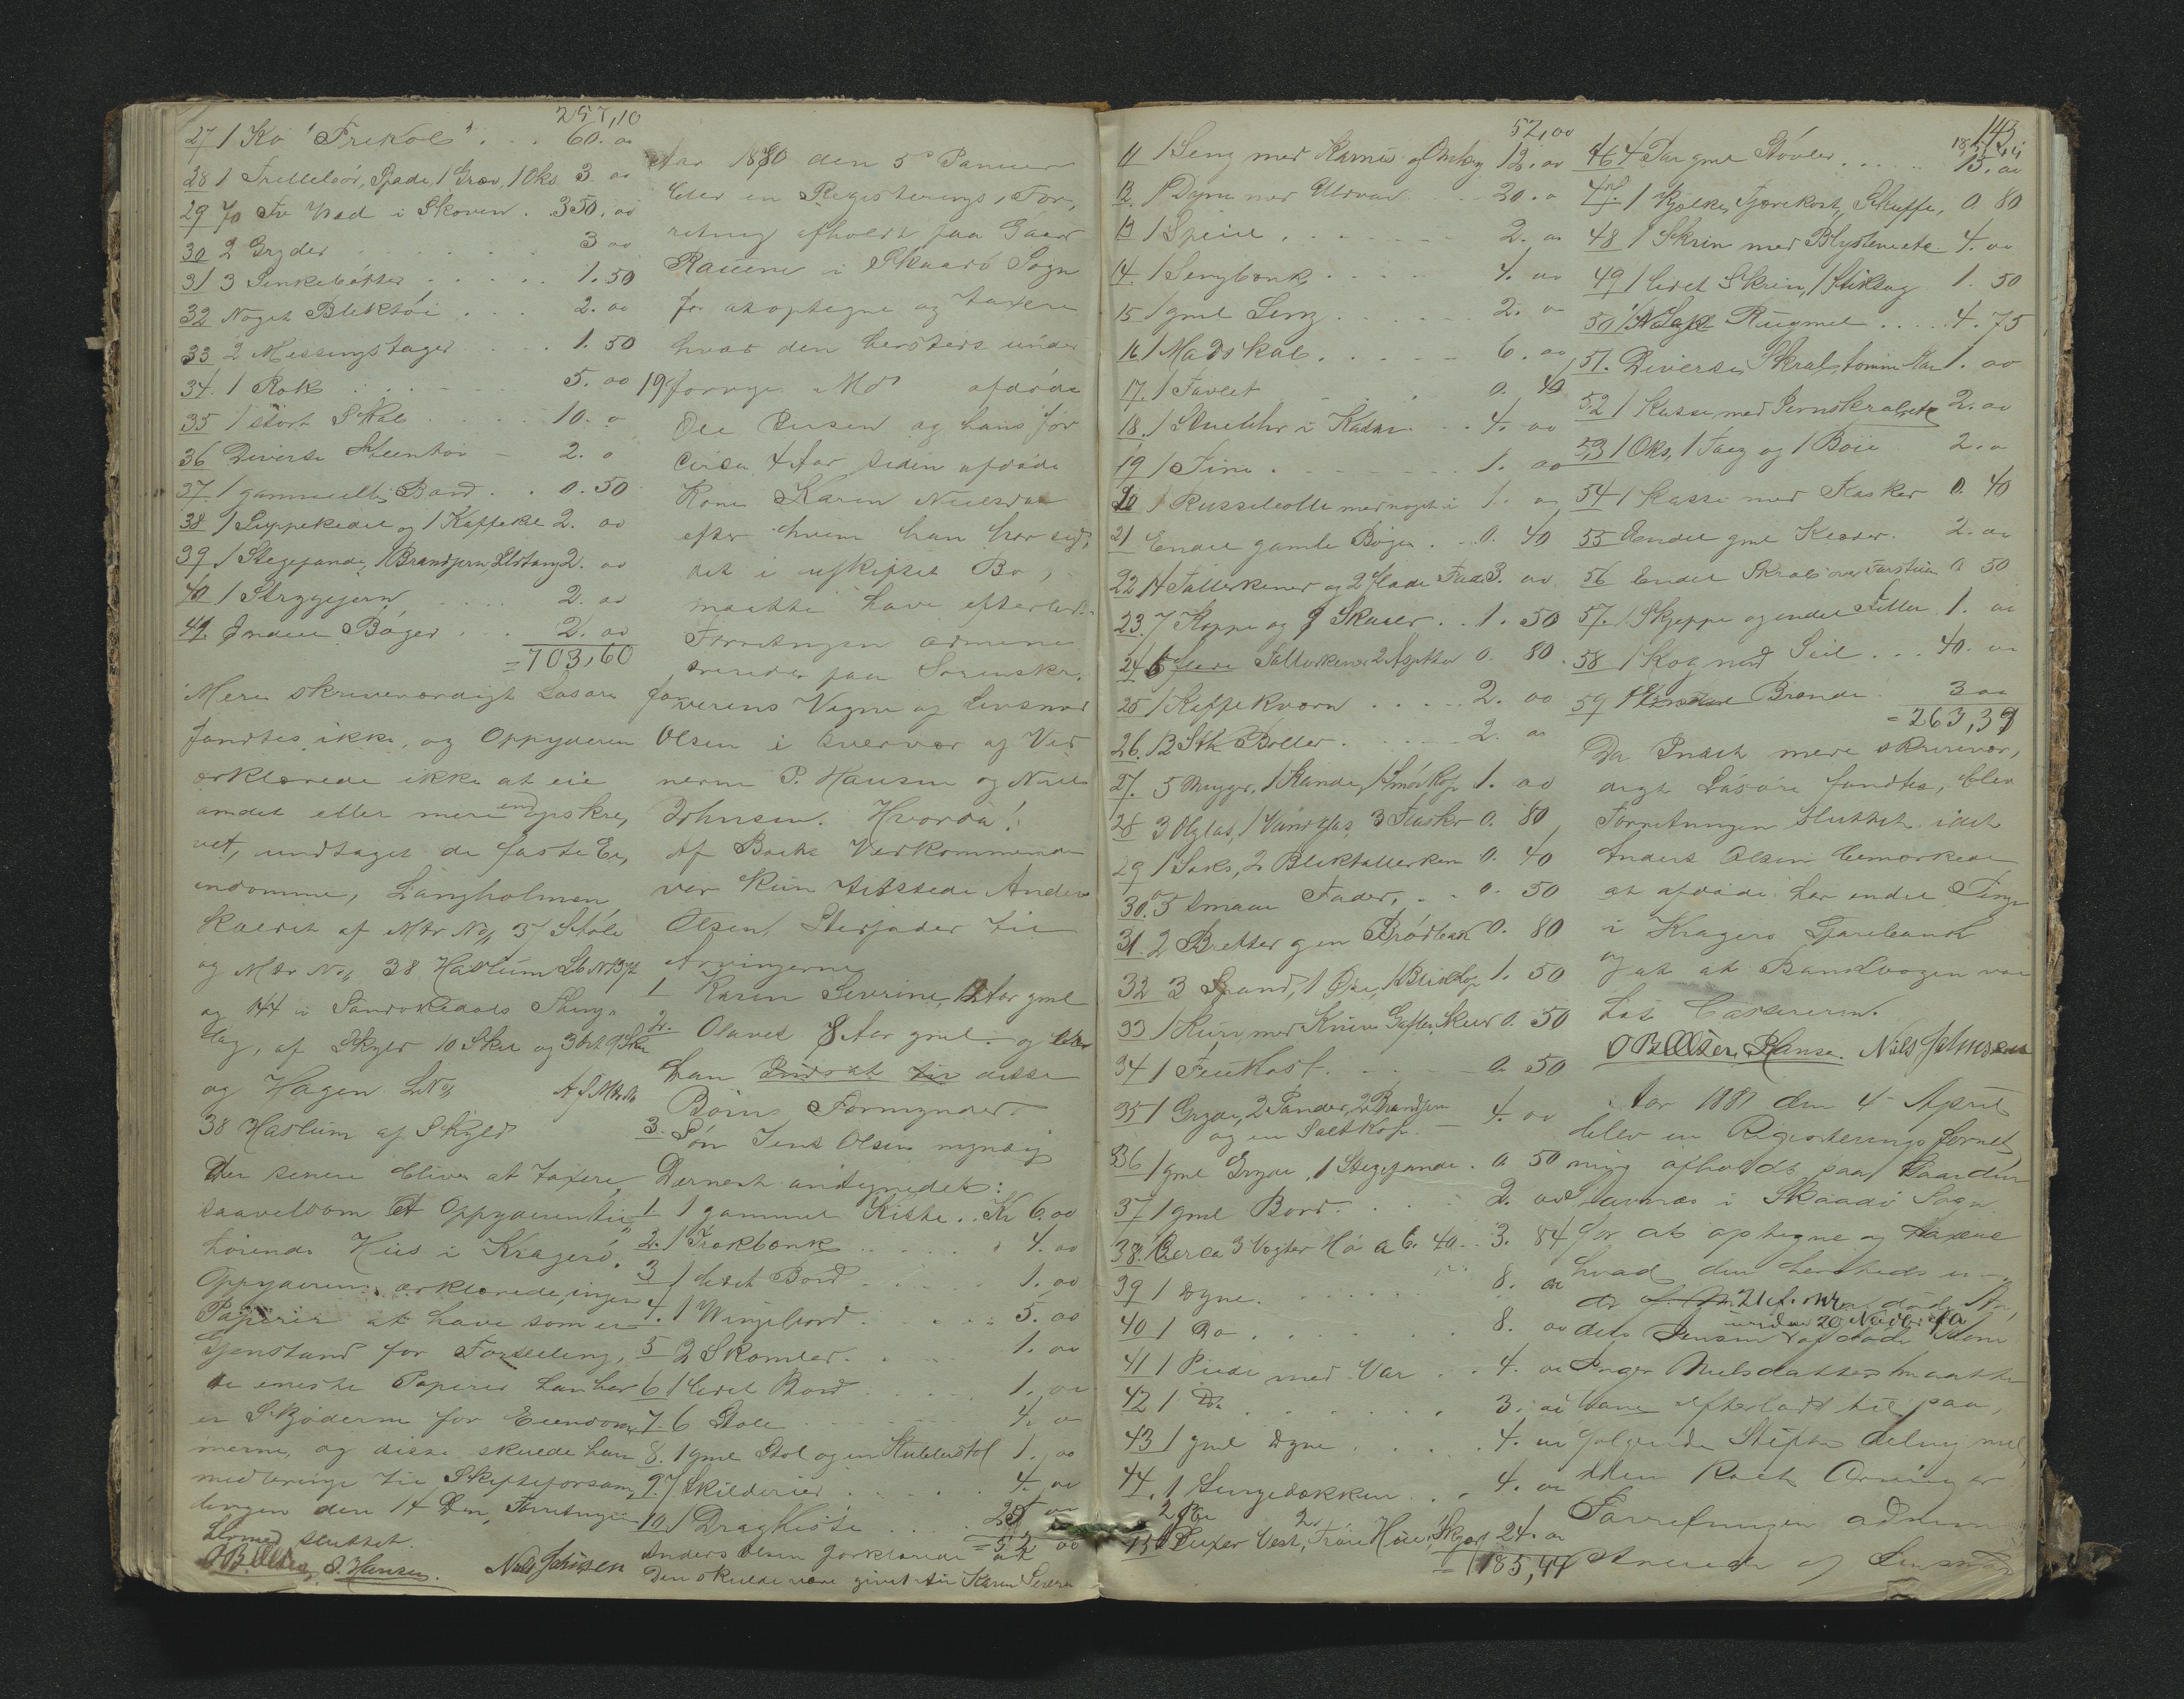 257,10
27 1 Ko "Frikol" . . 60. oo
28 1 Trillebör, Spade, 1 Grev, 1 Öks 3. oo
29 70 Fv Ved i Skoven . 350. oo
30 2 Gryder 3 oo
31 3 Senkebötter 1. 50
32 Noget Bliktöi . . . 2. oo
33 2 Messingstager . . 1. 50
34. 1 Rok 5. oo
35 1 stort Skab 10. o
36 Diverse Steentöi 2. o
37. 1 gammelt Bord . . 0. 50
38 1 Suppekedel og 1 Kaffekel 2. oo
39 1 Stegepande, 1 Brandjern, Ildtang 2. oo
40 1 Strygejern 2. oo
41. Endeel Böger . . . 2. oo
= 703,60
Mere skriveværdigt Lösöre
fandtes ikke, og Opgiveren
erklærede ikke at eie
andet eller mere end opskre,
vet, undtaget de faste Ei,
endomme, Langholmen
kaldet af Mtr No 37 Stöle
og Mtr No 38 Haslum Lb No 137
og 144 i Sandökedals Thing,
lag, af Skyld 10 Skil og 3 Ort 9 Skil
og Hagen LNo Af Mtr No
38 Haslum af Skyld
Der senere bliver at taxere,
saavelsom et Opgiveren til,
hörende Huus i Kragerö.
Opgiveren erklærede, ingen
Papirer at have som er
Gjenstand for Fordeling,
de eneste Papirer han har
er Skjöderne for Eiendom,
mene, og disse skulde han
medbringe til Skifteforsam,
lingen den 14 Dm, Forretningen
hermed sluttet.
OB. Olsen P. Hansen. Niels Johnsen
Aar 1880 den 5 Januar
blev en Registerings, For,
retning afholdt paa Gaard
Rauene i Skaadö Sogn
for at optegne og taxere
hvad den hersteds under
19 forrige Md afdöde
Ole Jensen og hans for
circa 4 Aar siden afdöde
Kone Karen Nielsdat
efter hvem han har sid,
det i uskiftet Bo,
maatte have efterladt.
Forretningen admini
streredes paa Sorenskri,
verens Vegne af Lensmd
Olsen i Overvær af Vid
nerne P. Hansen og Niels
Johnsen. Hvorda!
Af Boets Vedkommende
var kun tilstede Anders
Olsen Stedfader til
Arvingerne
1 Karen Severine, 12 Aar gml
2. Olaves 8 Aar gml. og
han Indsat til disse
Börns Formynder
3. Sön Jens Olsen myndig
Dernest andgivedes:
1 1 gammel Kiste . . Kr 6. oo
2. 1 Trækbænk 4. oo
3 1 lidet Bord 1. oo
4. 1 Wingebord 5. oo
5 2 Skamler 1. oo
6 1 lidet Bord 1. oo
7. 6 Stole 4. o
8. 1 gml Stol og en Kubbestol 1. oo
9. 7 Skilderier 4. oo
10. 1 Dragkiste 25 oo
= 52 oo
Anders Olsen forklarede at
Den skulde være givet til Karen Severin
52,oo
11 1 Seng med Karnis og Omhæng 12. oo
12. 1 Dyne med Uldvar 20. o
13 1 Speil 2. oo
14. 1 Sengbænk 4. oo
15 1 gml Seng 2. o
16. 1 Madskab 6. oo
17. 1 Tavlet 0. 40
18. 1 Stuebhr i Kasse 4. oo
19 1 Tine 1. oo
20 1 Russelolle med noget i 1. o
21 Endel gamle Böger . . 0. 40
22 14 Tallerkener og 2 flade Fad 3. oo
23. 7 Koppe og 9 Skaaler . . 1. 50
24. 6 flade Tallerkener, 2 Asjetter 0. 80
25 1 Kaffekværn 2. oo
26. 12 Stk Boller 2. o
27. 5 Mugger, 1 Kande, 1 Smörkop 1. oo
28 3 Ölglas, 1 Vandglas 3 Flasker 0. 80
29 1 Saks, 2 Bliktallerken 0. 40
30. 5 smaae Fader, 0. 50
31. 2 Bretter g en Brödbak 0. 80
32 3 Spand, 1 Öse, 1 Blikkop 1. 50
33 1 Kurv med Knive Gafler, Skeer 0. 50
34 1 Feiekost 0. 50
35 1 Gryde, 2 Pander, 2 Brandjern 4. oo
og en Saltkop
36 1 gml Gryde, 1 Stegepande . 0. 50
37 1 gml Bord 2. oo
38. Cirea 3 Vogter Hö a C. 40 . . 3. 84
39 1 Dyne 8. oo
40 1 Do 8. oo
41 1 Pude med Var 4. oo
42 1 Do 3. oo
43 1 gml Dyne 4. oo
44. 1 Sengedækken 4. oo
2 Bu 2
45 Buxer Vest, Tröie Hue, Skjort 24. oo
= 185,44
143
185,44
46 4 Par gml Stövler 15. oo
47. 1 Kjelke, Tjærekost, Skuffe, 0. 80
48 1 Skrin med Blystene etc. 4. oo
49 1 lidet Skrin, 1 Stiksag 1. 50
50 1/2 Sæk Rugmel 4. 75
51. Diverse Skrab, tomme Kar 1. oo
52 1 Kasse med Jernskrab etc 2. oo
53 1 Öks, 1 Saeg og 1 Böie 2. o
54 1 Kasse med Flasker 0. 40
55 Endel gml Klæder. 2. oo
56 Endel Skrab over Farstuen 0. 50
57. 1 Skjeppe og endel Filler 1. oo
58 1 Kog med Seil 40. oo
59 Brænde 3 oo
= 263,39
Da Indet mere skrivevær,
digt Lösöre fandtes, blev
Forretningen sluttet idet
Anders Olsen bemærkede
at afdöde har endel Penge
i Kragerö Sparebank
og at at Bankbogen var
hos Casereren.
OB Olsen. P. Hansen. Niels Johnsen
Aar 1881 den 4 April
blev en Registerings forret,
ning afholdt paa Gaarden
Stavnæs i Skaadö Sogn
for at optegne og taxere
hvad den hersteds un,
der 21 f. Mr död An,
under 20 Novbr f A
ders Jensen & afdöde Kone
Inger Nielsdatter maatte
have efterladt til paa,
fölgende Skifte deling mel
lem Rette Arvinger
Forretningen admini
streredes af Lensmd